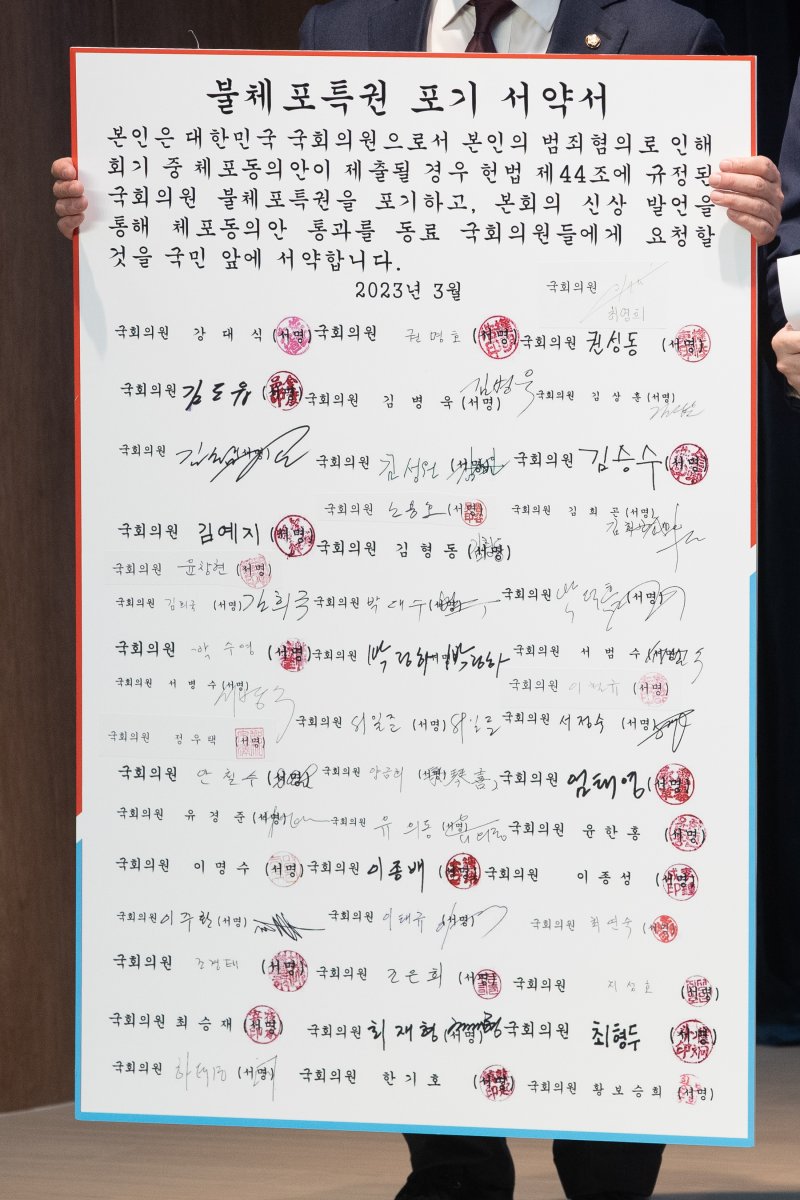 불체포특권 포기 서약서
본인은 대한민국 국회의원으로서 본인의 범죄혐의로 인해
회기 중 체포동의안이 제출될 경우 헌법 제44조에 규정된
국회의원 불체포특권을 포기하고, 본회의 신상 발언을
통해 체포동의안 통과를 동료 국회의원들에게 요청할
것을 국민 앞에 서약합니다.
2023년 3월
국회의원 최영희
국회의원 강대식 (서명) 국회의원 권명호 (서명) 국회의원 권성동 (서명)
국회의원 김도읍 (서명) 국회의원 김병욱 (서명) 김병욱 국회의원 김상훈 (서명)
국회의원 (서명) 국회의원 김성원 (서명) 국회의원 김승수 (서명)
국회의원 노용호 (서명) 국회의원 김희곤 (서명)
국회의원 김예지 (서명) 국회의원 김형동 (서명)
국회의원 윤창현 (서명)
국회의원 김희국 (서명) 김희국 국회의원 박대수 (서명) 국회의원 박덕흠 (서명)
국회의원 박수영 (서명) 국회의원 박정하 (서명) 박정하 국회의원 서범수 (서명)
국회의원 서병수 (서명) 국회의원 이철규 (서명)
국회의원 정우택 (서명) 국회의원 서일준 (서명) 서일준 국회의원 서정숙 (서명)
국회의원 안철수 (서명) 국회의원 양금희 (서명) 국회의원 엄태영 (서명)
국회의원 유경준 (서명) 국회의원 유의동 (서명) 국회의원 윤한홍 (서명)
국회의원 이명수 (서명) 국회의원 이종배 (서명) 국회의원 이종성 (서명)
국회의원 이주환 (서명) 국회의원 이태규 (서명) 국회의원 최연숙 (서명)
국회의원 조경태 (서명) 국회의원 조은희 (서명) 국회의원 지성호 (서명)
국회의원 최승재 (서명) 국회의원 최재형 (서명) 국회의원 최형두 (서명)
국회의원 하태경 (서명) 국회의원 한기호 (서명) 국회의원 황보승희 (서명)